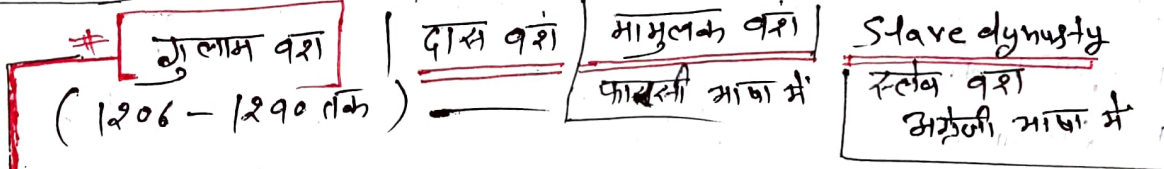 # गुलाम वंश | दास वंश / मामुलक वंश | Slave dynusty
(1206 – 1290 तक) — फारसी भाषा में | स्लेव वंश
अंग्रेजी भाषा में